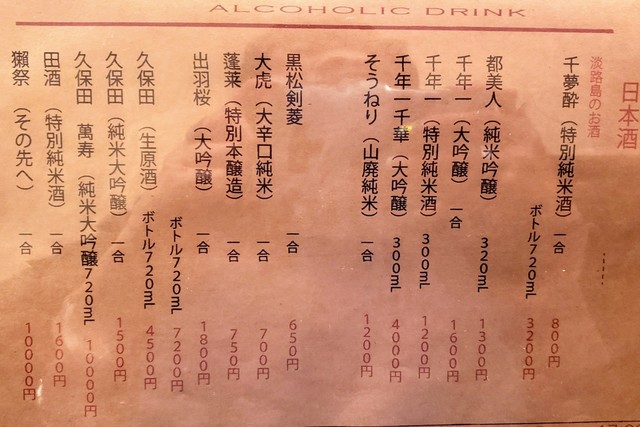 ALCOHOLIC DRINK
日本酒
淡路島のお酒
千夢酔（特別純米酒）一合 800円
ボトル720mL 3200円
都美人（純米吟醸）320mL 1300円
千年一（大吟醸）一合 1600円
千年一（特別純米酒）300mL 1200円
千年一千華（大吟醸）300mL 4000円
そうねり（山廃純米）一合 1200円
黒松剣菱 一合 650円
大虎（大辛口純米）一合 700円
蓬莱（特別本醸造）一合 750円
出羽桜（大吟醸）一合 1800円
ボトル720mL 7200円
久保田（生原酒）ボトル720mL 4500円
久保田（純米大吟醸）一合 1500円
久保田 萬寿（純米大吟醸）720mL 10000円
田酒（特別純米酒）一合 1600円
獺祭（その先へ）一合 10000円